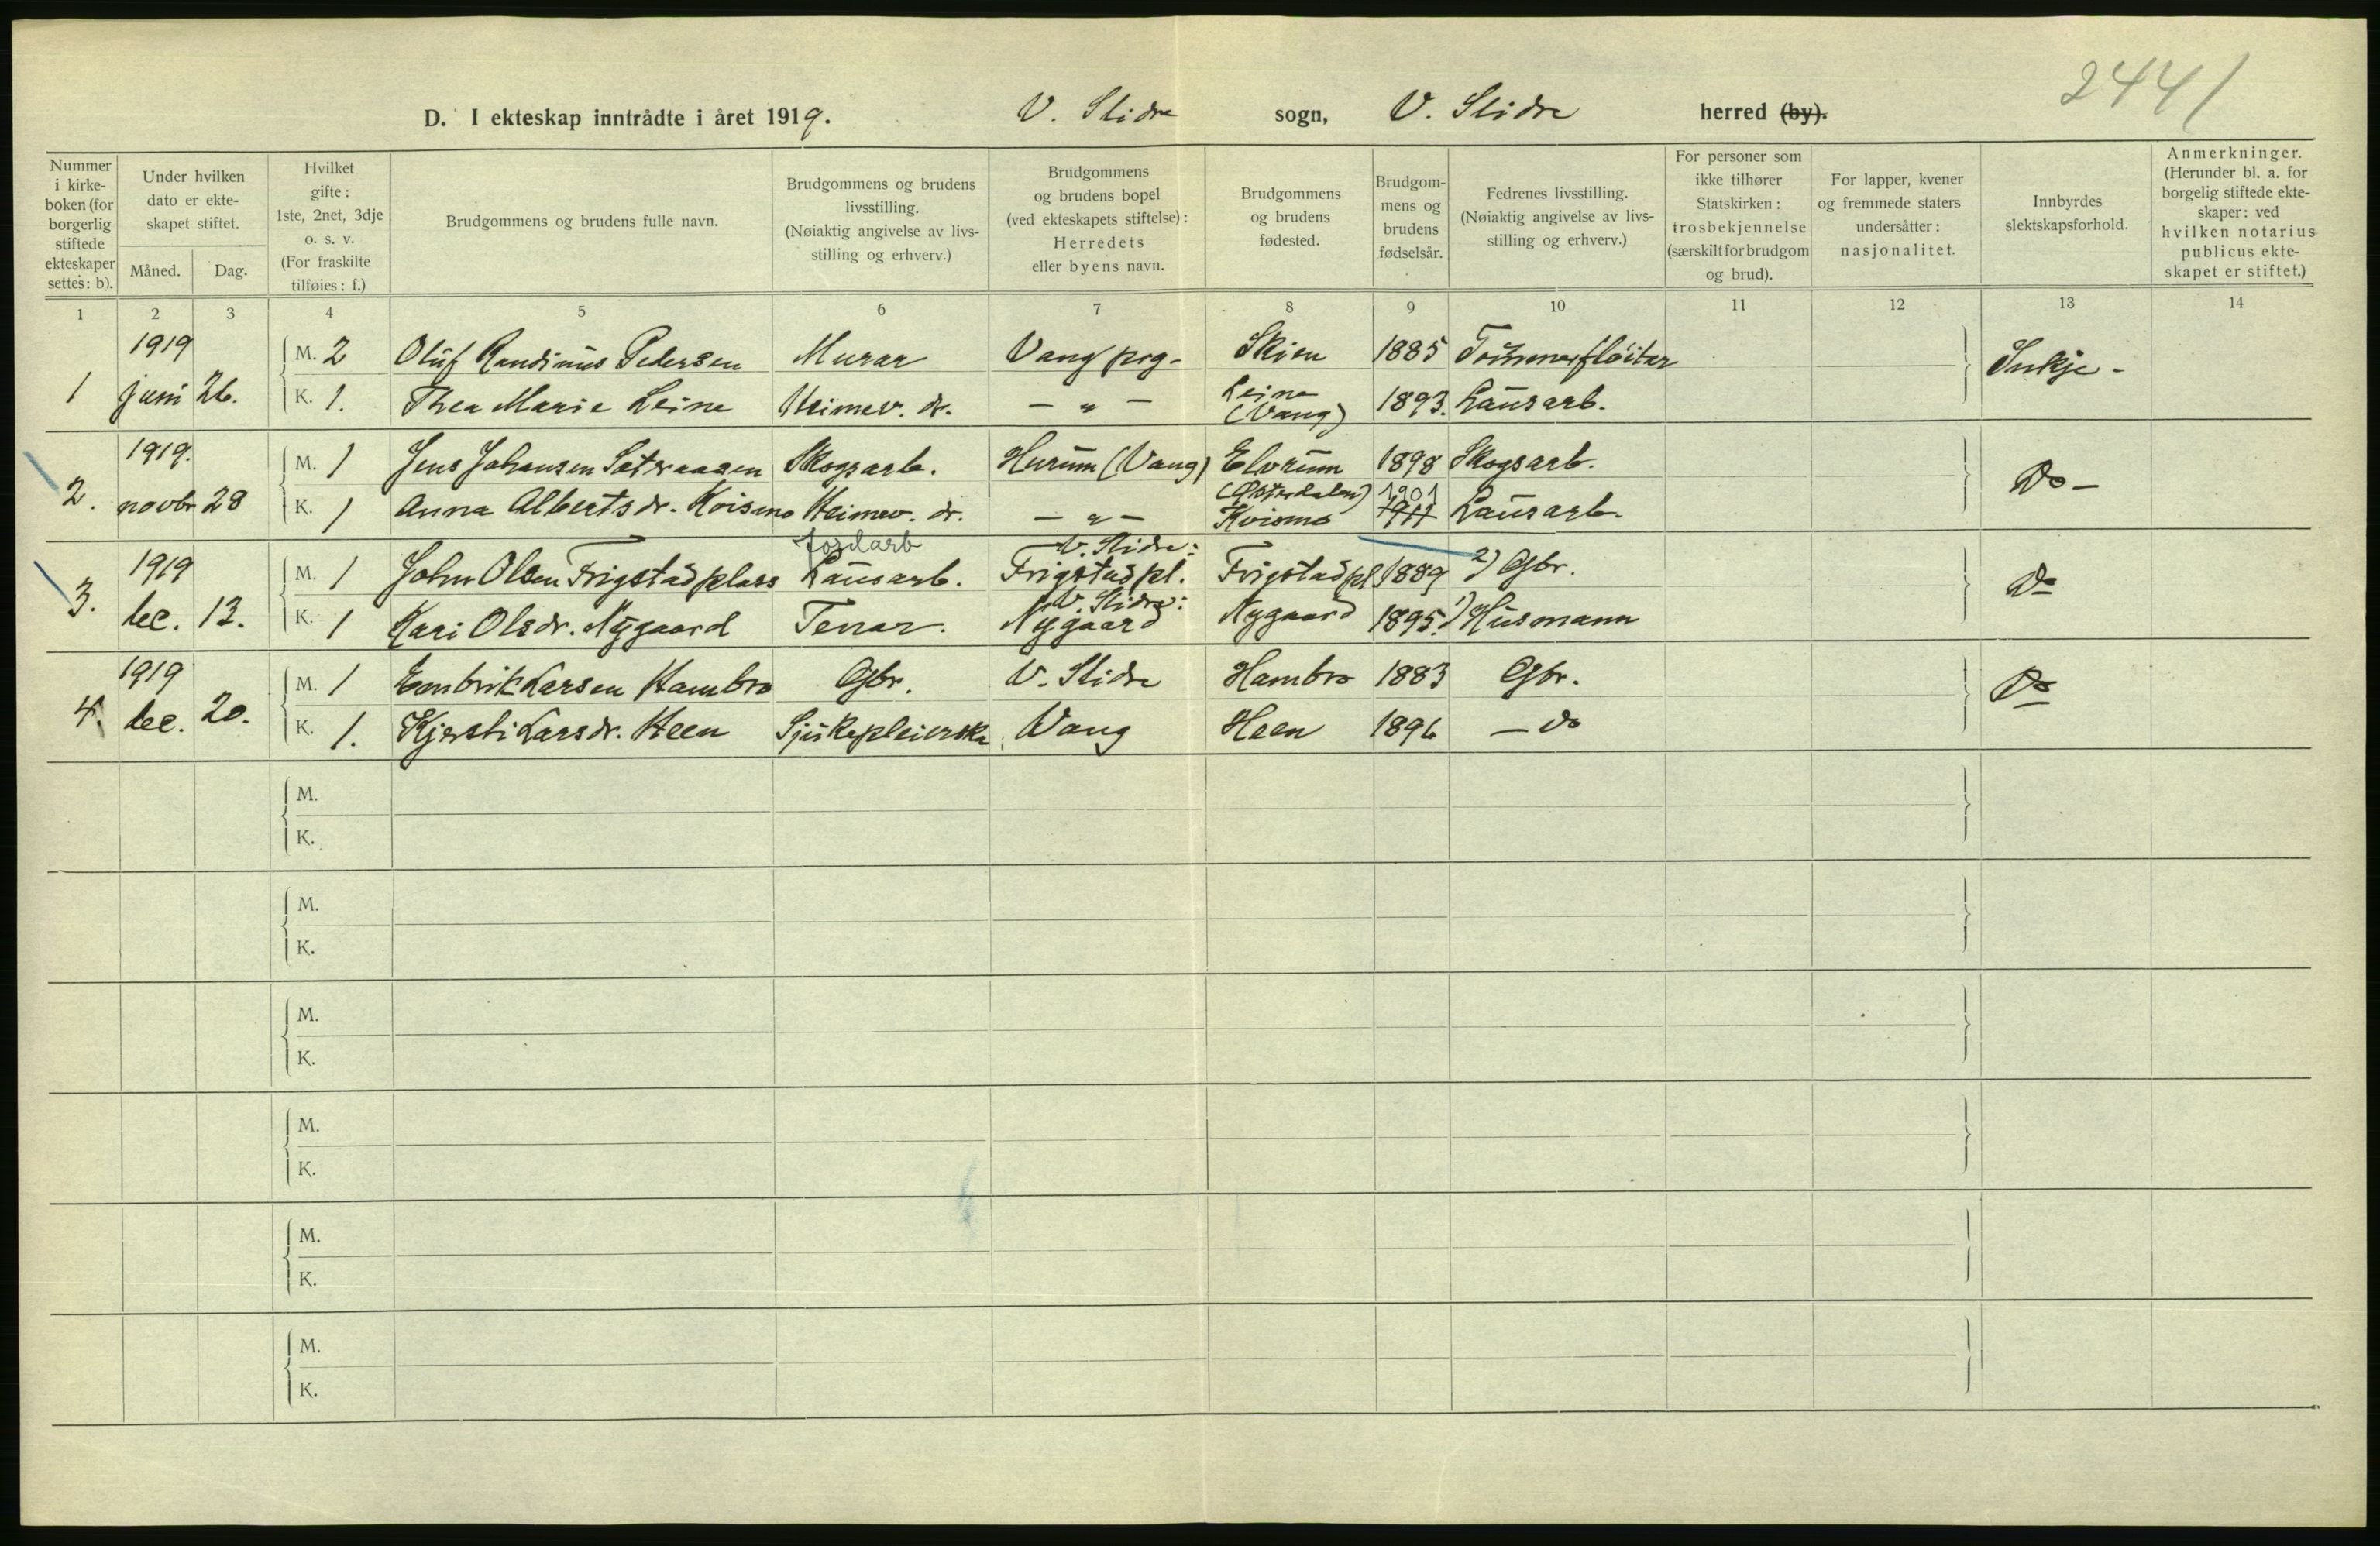 2441
D. I ekteskap inntrådte i året 1919. V. Slidre sogn, V. Slidre herred (by).
Nummer i kirkeboken (for borgerlig stiftede ekteskaper settes: b).
Under hvilken dato er ekteskapet stiftet.
Måned. Dag.
Hvilket gifte: 1ste, 2net, 3dje o. s. v. (For fraskilte tilføies: f.)
Brudgommens og brudens fulle navn.
Brudgommens og brudens livsstilling. (Nøiaktig angivelse av livsstilling og erhverv.)
Brudgommens og brudens bopel (ved ekteskapets stiftelse): Herredets eller byens navn.
Brudgommens og brudens fødested.
Brudgommens og brudens fødselsår.
Fedrenes livsstilling. (Nøiaktig angivelse av livsstilling og erhverv.)
For personer som ikke tilhører Statskirken: trosbekjennelse (særskilt for brudgom og brud).
For lapper, kvener og fremmede staters undersåtter: nasjonalitet.
Innbyrdes slektskapsforhold.
Anmerkninger. (Herunder bl. a. for borgelig stiftede ekteskaper: ved hvilken notarius publicus ekteskapet er stiftet.)
1 2 3 4 5 6 7 8 9 10 11 12 13 14
1919
M. 2 Oluf Randinius Pedersen Murar Vang prg. Skien 1885 Tömmerflöitar Inkje -
1 juni 26. K. 1. Thea Marie Leine Heimev. dr. - " - Leine (Vang) 1893. Lausarb.
1919.
M. 1 Jens Johansen Sætraasen Skogsarb. Hurum (Vang) Elvrum (Østerdalen) 1898 Skogsarb. Do -
2. novbr 28 K. 1 Anna Albertsdr. Koismo Heimev. dr. - " - Kvismo 1901 1911 Lausarb.
1919 jordarb V. Slidre:
M. 1 John Olsen Frigstadplass Lausarb. Frigstadpl. Frigstadpl 1889 2) Gbr. Do
V. Slidre:
3. dec. 13. K. 1 Kari Olsdr. Nygaard Tenar. Nygaard Nygaard 1895. 1) Husmann
1919
M. 1 Embrik Larsen Hambro Gbr. V. Slidre Hambro 1883 Gbr. Do
4. dec. 20. K. 1. Kjersti Larsdr. Heen Sjukepleierska Vang Heen 1896 - do
M.
K.
M.
K.
M.
K.
M.
K.
M.
K.
M.
K.